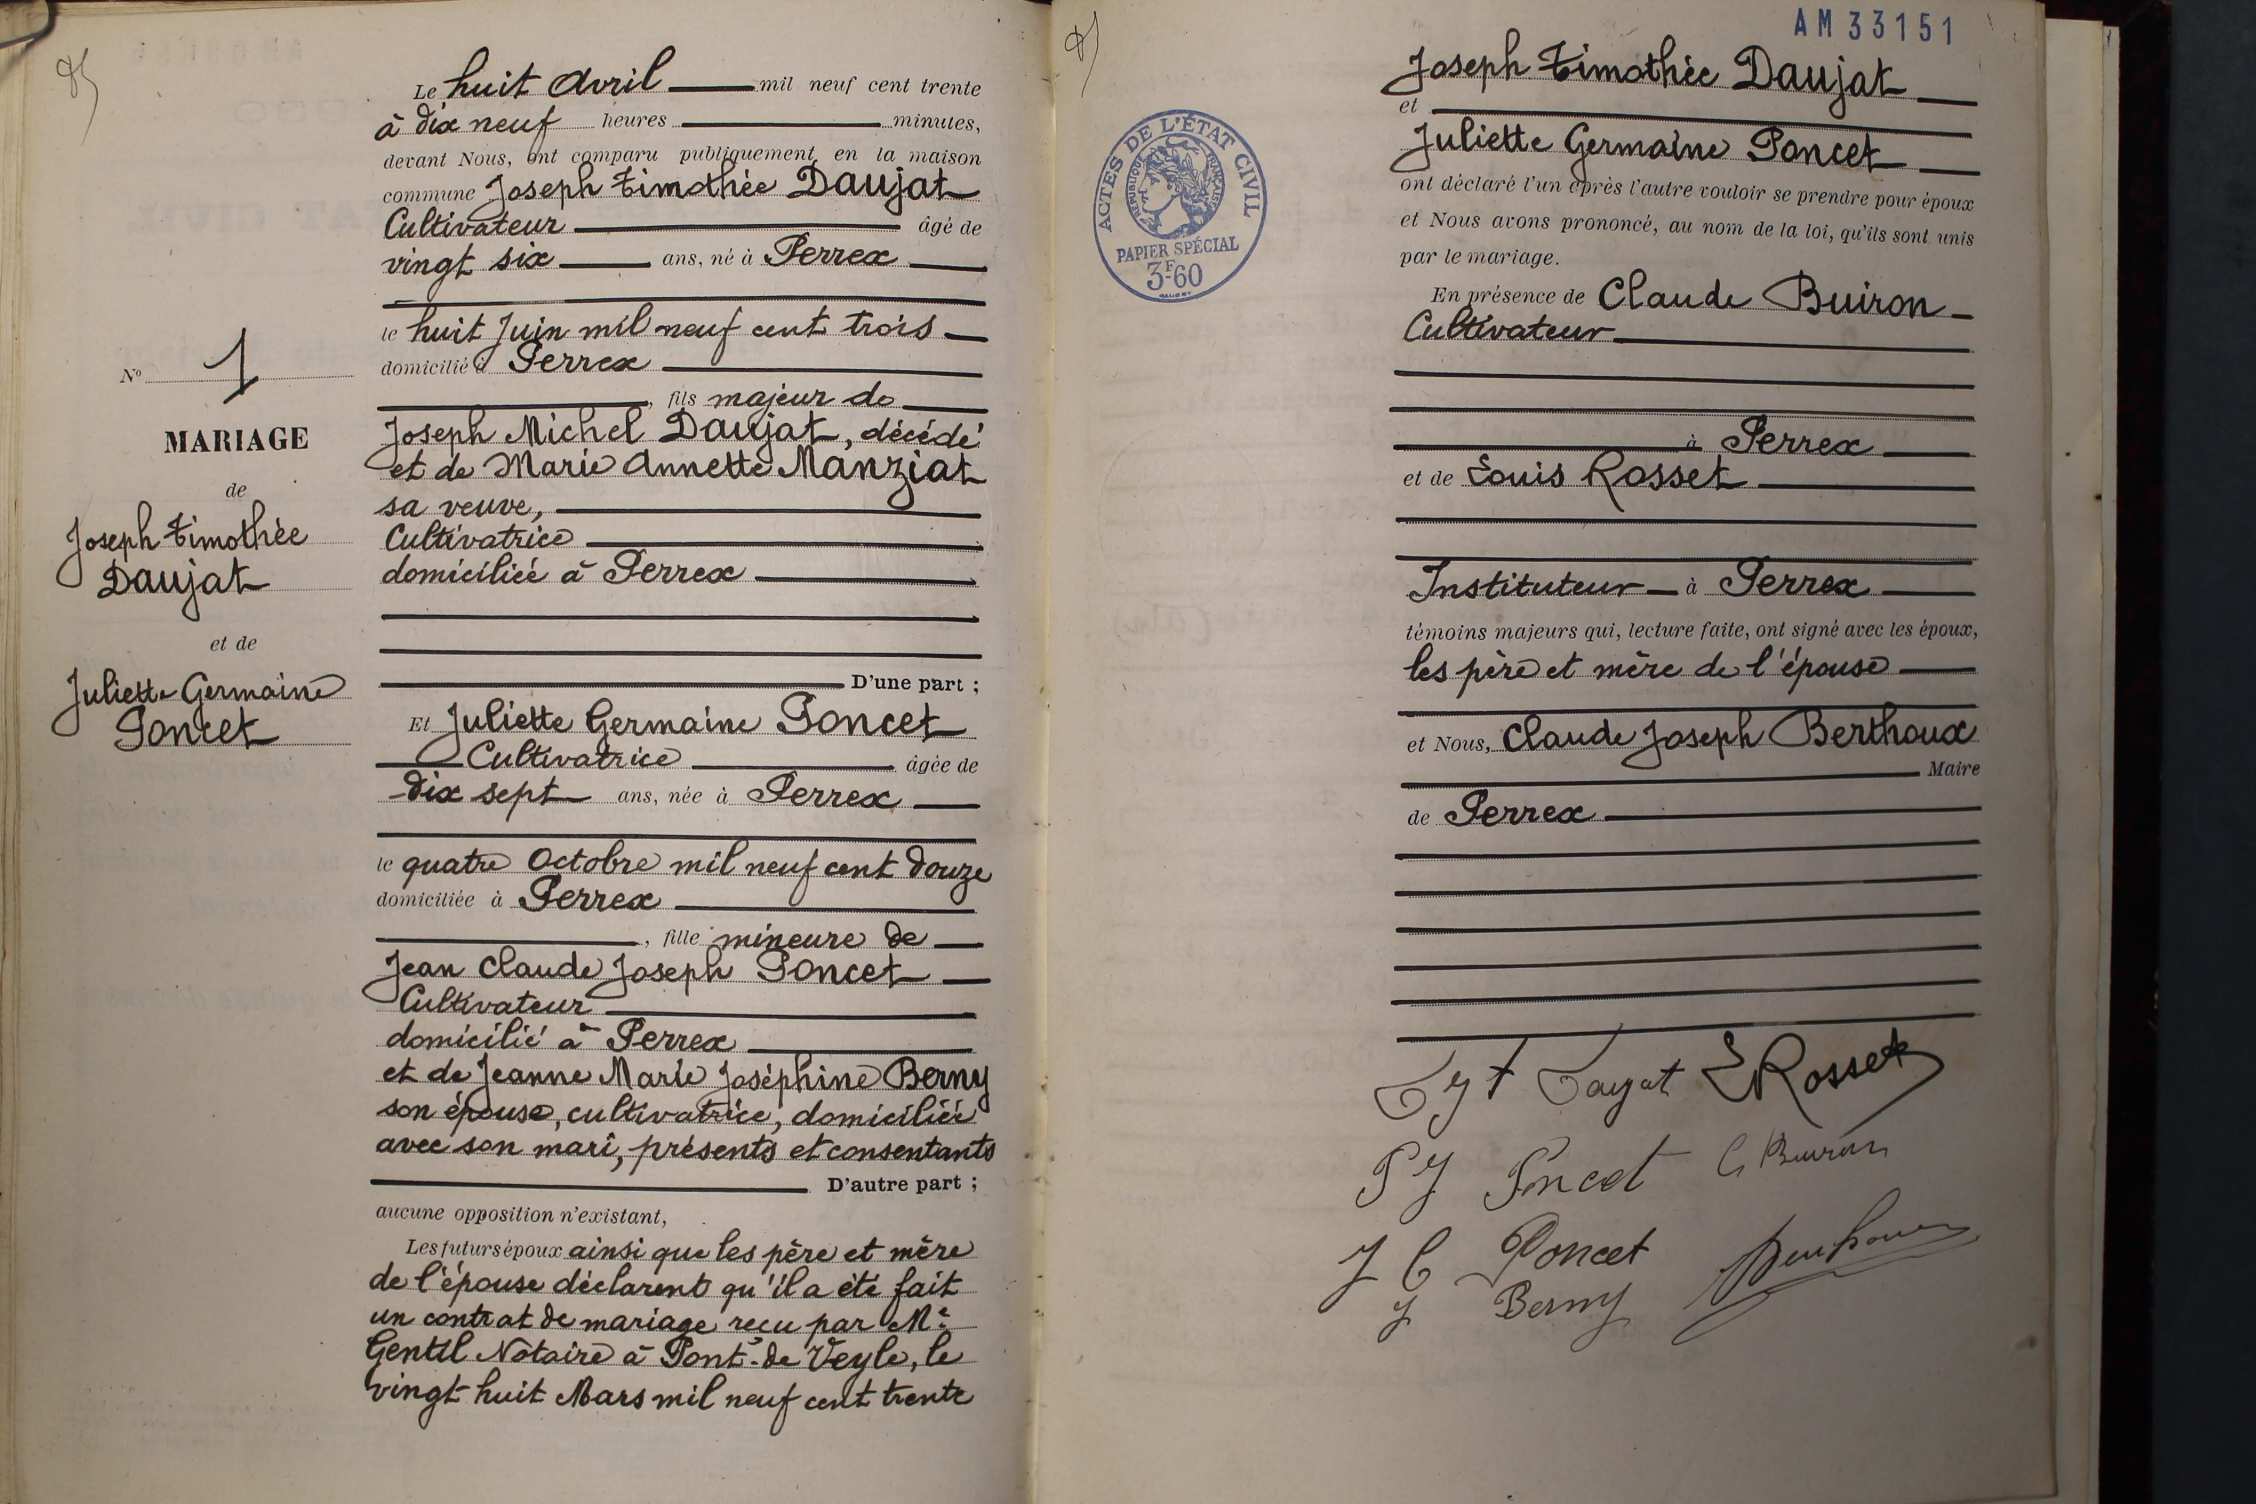 Le huit Avril mil neuf cent trente
à dix neuf heures minutes,
devant Nous, ont comparu publiquement en la maison
commune Joseph Timothée Daujat
Cultivateur âgé de
vingt six ans, né à Perrex
le huit Juin mil neuf cent trois
domicilié à Perrex
, fils majeur de
Joseph Michel Daujat, décédé
et de Marie Annette Manziat
sa veuve,
Cultivatrice
domiciliée à Perrex
D'une part ;
Et Juliette Germaine Poncet
Cultivatrice âgée de
dix sept ans, née à Perrex
le quatre Octobre mil neuf cent douze
domiciliée à Perrex
, fille mineure de
Jean Claude Joseph Poncet
Cultivateur
domicilié à Perrex
et de Jeanne Marie Joséphine Berny
son épouse, cultivatrice, domiciliée
avec son mari, présents et consentants
D'autre part ;
aucune opposition n'existant,
Les futurs époux ainsi que les père et mère
de l'épouse déclarent qu'il a été fait
un contrat de mariage reçu par Me
Gentil Notaire à Pont-de-Veyle, le
vingt huit Mars mil neuf cent trente
No 1
MARIAGE
de
Joseph Timothée
Daujat
et de
Juliette Germaine
Poncet
AM 33151
ACTES DE L'ÉTAT CIVIL
RÉPUBLIQUE FRANÇAISE
PAPIER SPÉCIAL
3F-60
Joseph Timothée Daujat
et
Juliette Germaine Poncet
ont déclaré l'un après l'autre vouloir se prendre pour époux
et Nous avons prononcé, au nom de la loi, qu'ils sont unis
par le mariage.
En présence de Claude Buiron
Cultivateur
à Perrex
et de Louis Rosset
Instituteur à Perrex
témoins majeurs qui, lecture faite, ont signé avec les époux,
les père et mère de l'épouse
et Nous, Claude Joseph Berthoux
Maire
de Perrex
L Rosset
Poncet C Buiron
J C Poncet
J Berny